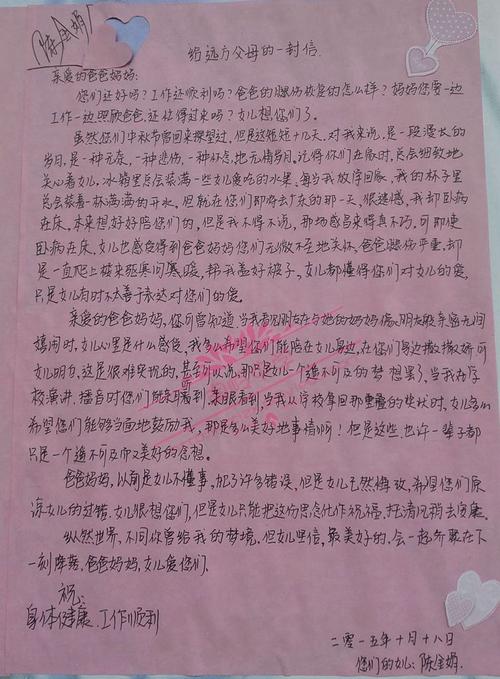 陈金娟
给远方父母的一封信.
亲爱的爸爸妈妈:
您们还好吗?工作还顺利吗?爸爸的腿伤恢复的怎么样?妈妈您要一边
工作一边照顾爸爸,还忙得过来吗?女儿想您们了。
虽然您们中秋节曾回来探望过,但是这短短十几天,对我来说,是一段漫长的
岁月,是一种无奈,一种悲伤,一种怀念,地无情岁月,记得你们在家时,总会细致地
关心着女儿.冰箱里总会装满一些女儿爱吃的水果,每当我放学回家,我的杯子里
总会装着一杯满满的开水,但就在你们即将去广东的那一天,很遗憾,我却卧病
在床。本来想好好陪您们的,但是我不得不说,那场感冒来得真不巧,可即使
卧病在床,女儿也感受得到爸爸妈妈您们无微不至地关怀,爸爸腿伤严重,却
是一直爬上楼来班寒问寒暖,帮我盖好被子,女儿都懂得您们对女儿的爱,
只是女儿有时不太善于表达对您们的爱。
亲爱的爸爸妈妈,您可曾知道,当我看见朋友在与她的妈妈像朋友般亲密无间
嬉闹时,女儿心里是什么感受,我多么希望您们能陪在女儿身边,在你们身边撒撒娇可
女儿明白,这是很难实现的,甚至可以说,那只是女儿一个遥不可及的梦想罢了,当我在学
校演讲、播音时您们能亲耳看到,亲眼看到,当我从学校拿回那重叠的奖状时,女儿多么
希望您们能够当面地鼓励我,那是多么美好地事情啊!但是这些,也许一辈子都
只是一个遥不可及而又美好的念想。
爸爸妈妈,以前是女儿不懂事,犯了许多错误,但是女儿已然悔改,希望您们原
谅女儿的过错,女儿很想您们,但是女儿只能把这份思念化作祝福,托清风捎去安康
纵然世界,不同你曾给我的梦境,但女儿坚信,最美好的,会一起齐聚在下
一刻降落,爸爸妈妈,女儿爱您们。
祝:
身体健康.工作顺利
二零一五年十月十八日
您们的女儿:陈金娟.